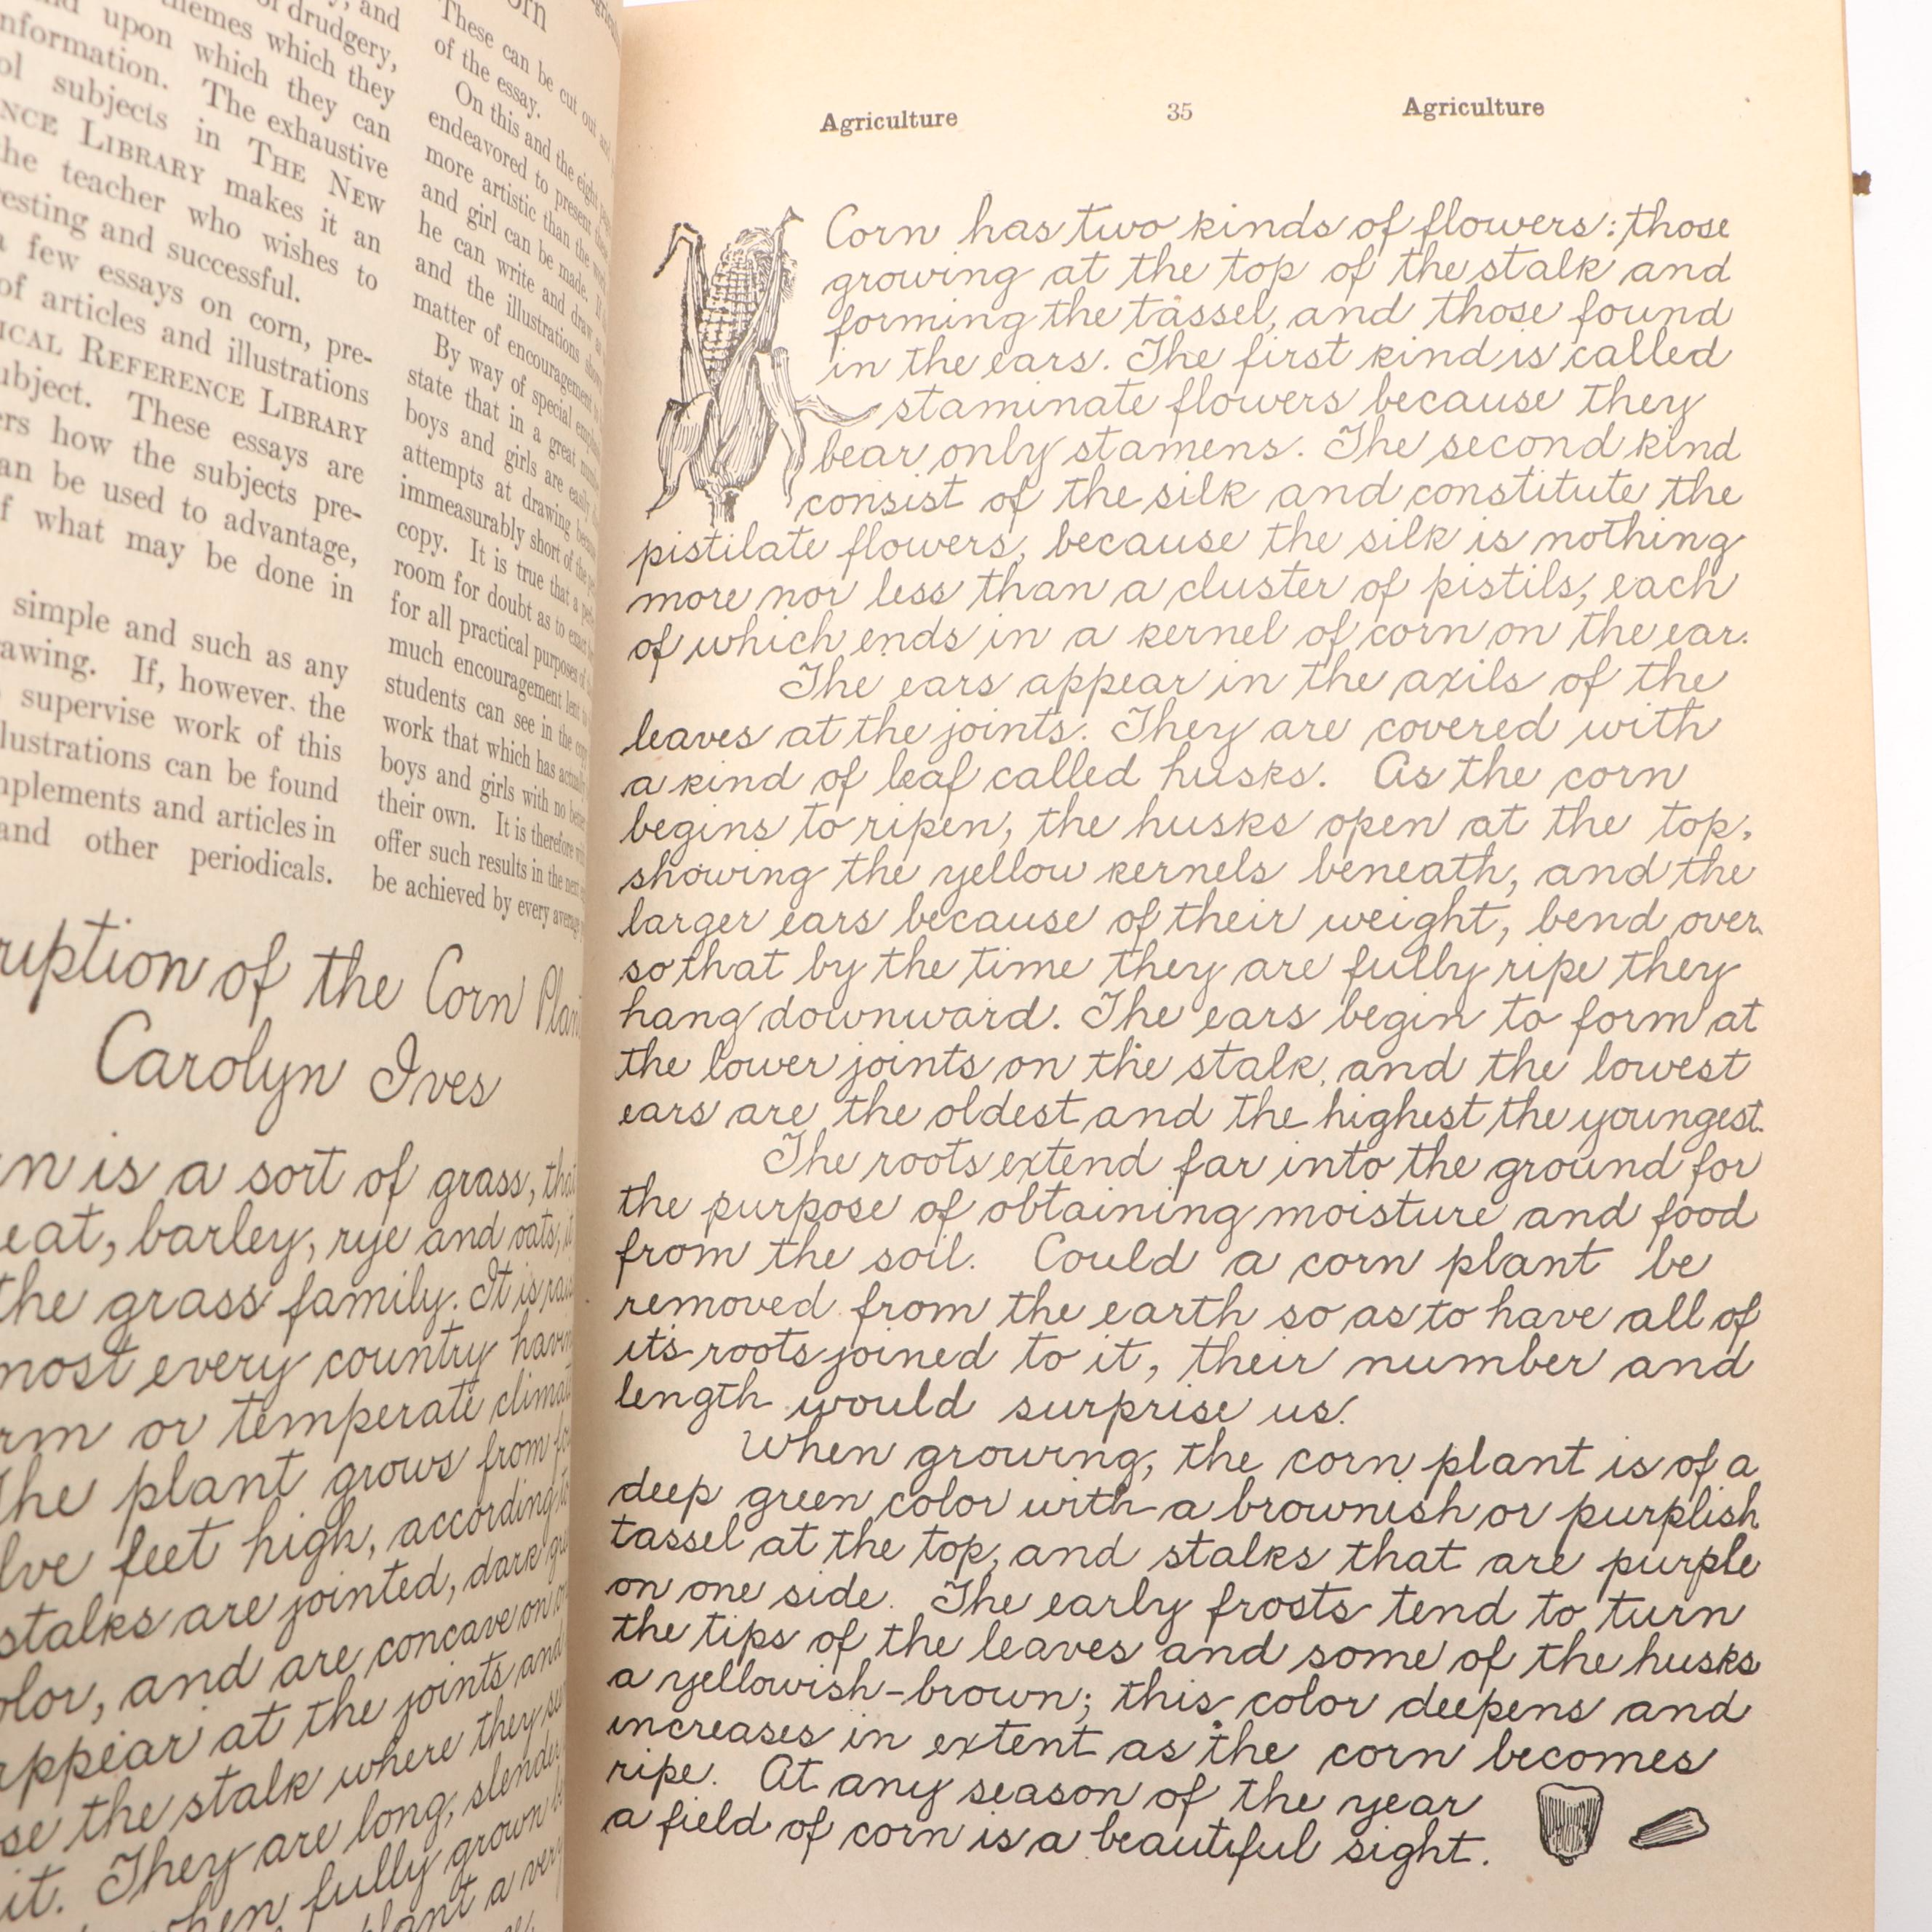 upon which they can
nformation. The exhaustive
subjects in THE NEW
NCE LIBRARY makes it an
the teacher who wishes to
esting and successful.
few essays on corn, pre-
of articles and illustrations
ICAL REFERENCE LIBRARY
ubject. These essays are
ers how the subjects pre-
an be used to advantage,
f what may be done in
simple and such as any
awing. If, however, the
supervise work of this
llustrations can be found
mplements and articles in
and other periodicals.
These can be cut out and
of the essay.
On this and the eight
endeavored to present these
more artistic than the
and girl can be made. If
he can write and draw as
and the illustrations show
matter of encouragement
By way of special
state that in a great
boys and girls are easily
attempts at drawing because
immeasurably short of the
copy. It is true that a
room for doubt as to exact
for all practical purposes of
much encouragement lent
students can see in the copy
work that which has actually
boys and girls with no better
their own. It is therefore
offer such results in the next
be achieved by every average
ruption of the Corn Plan
Carolyn Ives
n is a sort of grass, that
eat, barley, rye and oats, it
the grass family. It is rais
most every country havin
rm or temperate climat
The plant grows from
lve feet high, according to
stalks are jointed, dark
olor, and are concave on
appear at the joints and
se the stalk where they
it. They are long, slender
when fully grown
plant a very
Agriculture 35 Agriculture
Corn has two kinds of flowers: those
growing at the top of the stalk and
forming the tassel, and those found
in the ears. The first kind is called
staminate flowers because they
bear only stamens. The second kind
consist of the silk and constitute the
pistilate flowers, because the silk is nothing
more nor less than a cluster of pistils, each
of which ends in a kernel of corn on the ear.
The ears appear in the axils of the
leaves at the joints. They are covered with
a kind of leaf called husks. As the corn
begins to ripen, the husks open at the top,
showing the yellow kernels beneath, and the
larger ears because of their weight, bend over
so that by the time they are fully ripe they
hang downward. The ears begin to form at
the lower joints on the stalk, and the lowest
ears are the oldest and the highest the youngest.
The roots extend far into the ground for
the purpose of obtaining moisture and food
from the soil. Could a corn plant be
removed from the earth so as to have all of
its roots joined to it, their number and
length would surprise us.
When growing, the corn plant is of a
deep green color with a brownish or purplish
tassel at the top, and stalks that are purple
on one side. The early frosts tend to turn
the tips of the leaves and some of the husks
a yellowish-brown; this color deepens and
increases in extent as the corn becomes
ripe. At any season of the year
a field of corn is a beautiful sight.